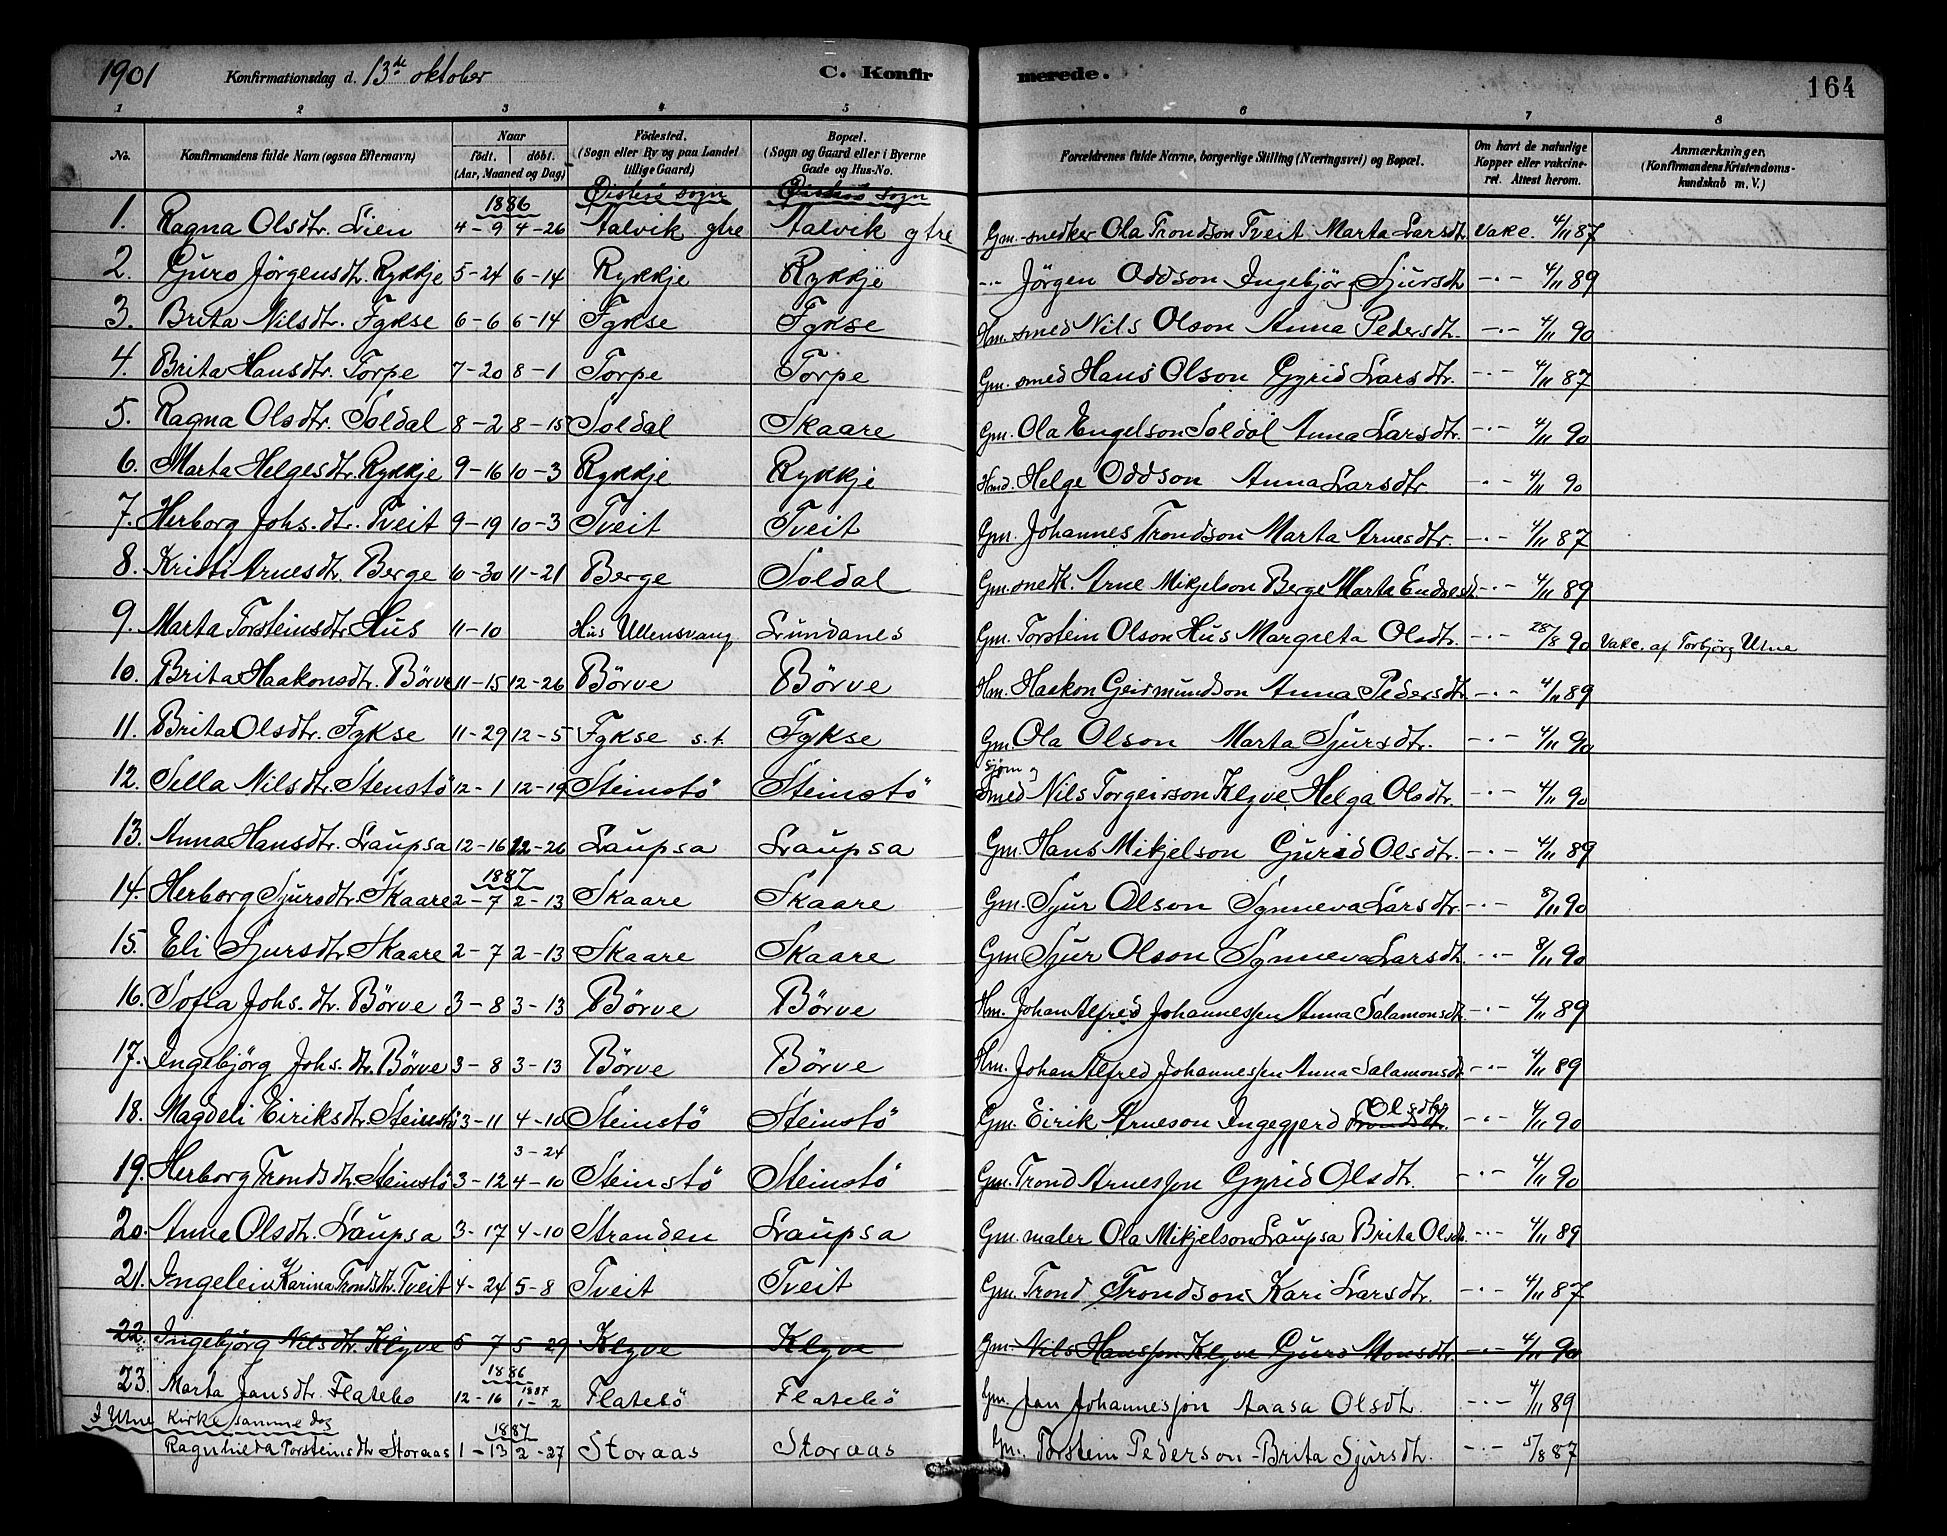 1901 Konfirmationsdag d. 13de oktober C. Konfirmerede. 164
1 2 3 4 5 6 7 8
No. Konfirmandens fulde Navn (ogsaa Efternavn) Naar födt. döbt. (Aar, Maaned og Dag) Födested. (Sogn eller By og paa Landet tillige Gaard) Bopæl. (Sogn og Gaard eller i Byerne Gade og Hus-No. Forældrenes fulde Navne, borgerlige Stilling (Næringsvei) og Bopæl. Om havt de naturlige Kopper eller vakcineret. Attest herom. Anmærkninger, (Konfirmandens Kristendomskundskab m. V.)
1886 Östesö sogn Östesö sogn
1. Ragna Olsdtr. Lien 4-9 4-26 Aalvik ytre Aalvik ytre Gm. snedker Ola Trondson Tveit Marta Larsdt. vakc. 4/11 87
2. Guro Jörgensdt. Rykkje 5-24 6-14 Rykkje Rykkje -"- Jörgen Oddson Ingebjörg Sjursdt. -"- 4/11 89
3. Brita Nilsdtr. Fykse 6-6 6-14 Fykse Fykse Hm. smed Nils Olson Anna Pedersdt. -"- 4/11 90
4. Brita Hansdtr. Torpe 7-20 8-1 Torpe Torpe Gm. smed Hans Olson Gyrid Larsdtr. -"- 4/11 87
5. Ragna Olsdtr. Soldal 8-2 8-15 Soldal Skaare Gm. Ola Engelson Soldal Anna Larsdtr. -"- 4/11 90
6. Marta Helgesdtr. Rykkje 9-16 10-3 Rykkje Rykkje Hmd. Helge Oddson Anna Larsdtr. -"- 4/11 90
7. Herborg Johs.dtr. Tveit 9-19 10-3 Tveit Tveit Gm. Johannes Trondson Marta Arnesdtr. -"- 4/11 87
8. Kristi Arnesdtr. Berge 10-30 11-21 Berge Soldal Gm. snedk. Arne Mikjelson Berge Marta Endresdt. -"- 4/11 89
9. Marta Torsteinsdtr. Hus 11-10 Hus Ullensvang Lundanes Gm. Torstein Olson Hus Margreta Olsdtr. -"- 28/8 90 Vakc. af Torbjörg Utne
10. Brita Haakonsdtr. Börve 11-15 12-26 Börve Börve Hm. Haakon Geirmundson Anna Pedersdt. -"- 4/11 89
11. Brita Olsdtr. Fykse 11-29 12-5 Fykse s.t. Fykse Gm. Ola Olson Marta Sjursdtr. -"- 4/11 90
12. Sella Nilsdtr. Steinstö 12-1 12-19 Steinstö Steinstö sjöm. og smed Nils Torgeirson Klyve Helga Olsdtr. -"- 4/11 90
13. Anna Hansdtr. Laupsa 12-16 12-26 Laupsa Laupsa Gm. Hans Mikjelson Gurid Olsdtr. -"- 4/11 89
1887
14. Herborg Sjursdtr. Skaare 2-7 2-13 Skaare Skaare Gm. Sjur Olson Synneva Larsdtr. -"- 8/11 90
15. Eli Sjursdtr. Skaare 2-7 2-13 Skaare Skaare Gm. Sjur Olson Synneva Larsdt. -"- 8/11 90
16. Sofia Johs.dtr. Börve 3-8 3-13 Börve Börve Hm. Johan Alfred Johannessen Anna Salamonsdt. -"- 4/11 89
17. Ingebjörg Johs.dtr. Börve 3-8 3-13 Börve Börve Hm. Johan Alfred Johannessen Anna Salamonsdt. -"- 4/11 89
18. Magdeli Eiriksdtr. Steinstö 3-11 4-10 Steinstö Steinstö Gm. Eirik Arneson Ingegjerd Trondsdt. Olsdtr. -"- 4/11 90
3-24
19. Herborg Trondsdt. Steinstö 3-12 4-10 Steinstö Steinstö Gm. Trond Arnesson Gyrid Olsdtr. -"- 4/11 90
20. Anna Olsdtr. Laupsa 3-17 4-10 Stranden Laupsa Gm. maler Ola Mikjelson Laupsa Brita Olsdt. -"- 4/11 89
21. Ingeleiv Karina Trondsdtr. Tveit 4-24 5-8 Tveit Tveit Gm. Trond Trondson Kari Larsdtr. -"- 4/11 87
22. Ingebjörg Nilsdtr. Klyve 5-7 5-29 Klyve Klyve Gm. Nils Hansson Klyve Guro Monsdtr. 4/11 90
1886
23. Marta Jansdtr. Flatebö 12-16 1887 1-2 Flatebö Flatebö Gm. Jan Johannesson Aasa Olsdt. -"- 4/11 89
I Utne Kirke samme dag 1887
Ragnhilda Torsteinsdtr Storaas 1-13 2-27 Storaas Storaas Gm. Torstein Pederson - Brita Sjursdtr. -"- 5/8 87